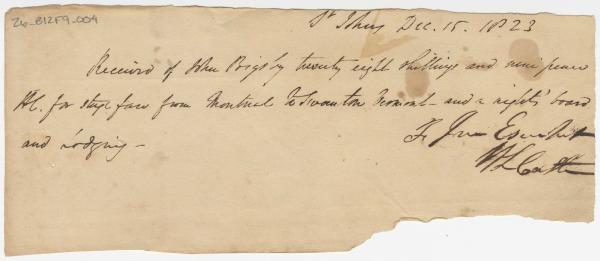 26-B12F9-004
St Johns Dec. 15. 1823
Received of John Bigsby twenty eight shillings and nine pence
HC. for stage fare from Montreal to Swanton Vermont and a nights board
and lodging —